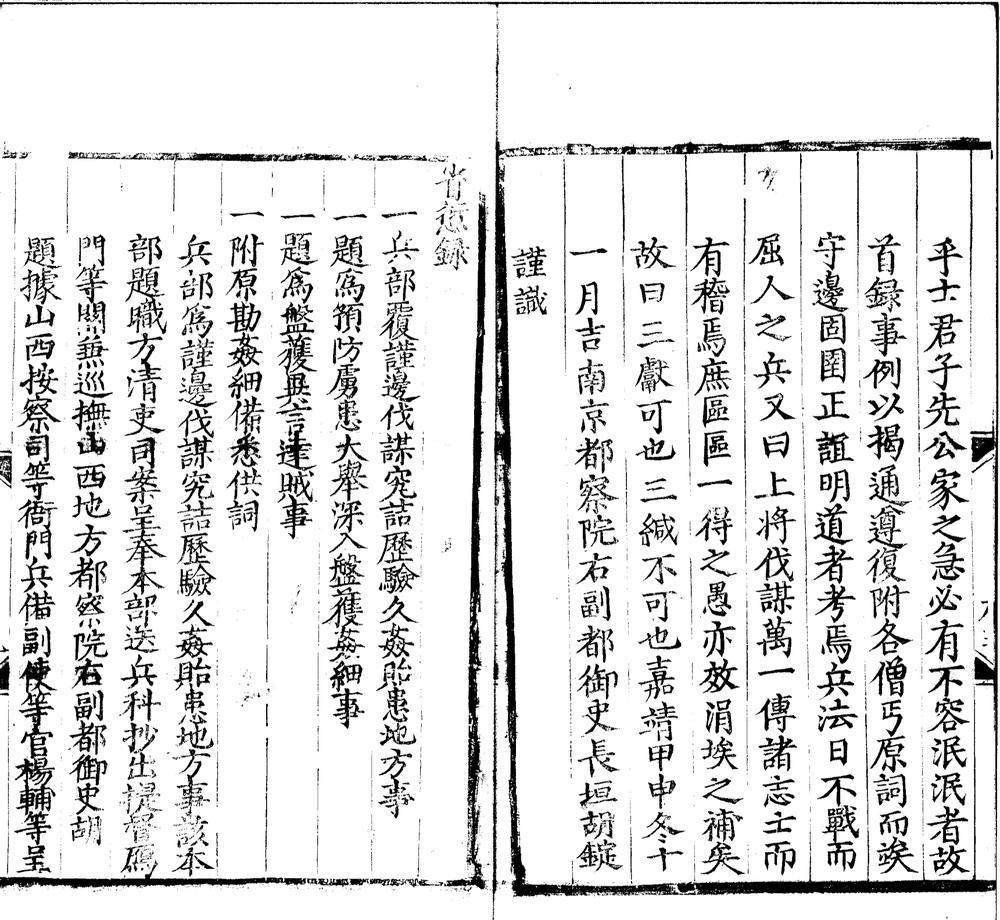 乎士君子先公家之急必有不容泯泯者故
首録事例以揭通遵復附各僧丐原詞而竢
守邊固圉正誼明道者考焉兵法曰不戰而
屈人之兵又曰上將伐謀萬一傳諸志士而
有稽焉庶區區一得之愚亦效涓埃之補矣
故曰三獻可也三緘不可也嘉靖甲申冬十
一月吉南京都察院右副都御史長垣胡錠
謹識
省愆録
一兵部覆謹邊伐謀究詰歷驗久姦貽患地方事
一題爲預防虜患大舉深入盤獲姦細事
一題爲盤獲異言達賊事
一附原勘姦細備悉供詞
兵部爲謹邊伐謀究詰歷驗久姦貽患地方事該本
部題職方清吏司案呈奉本部送兵科抄出提督鴈
門等關兼巡撫山西地方都察院右副都御史胡
題據山西按察司等衙門兵備副使等官楊輔等呈